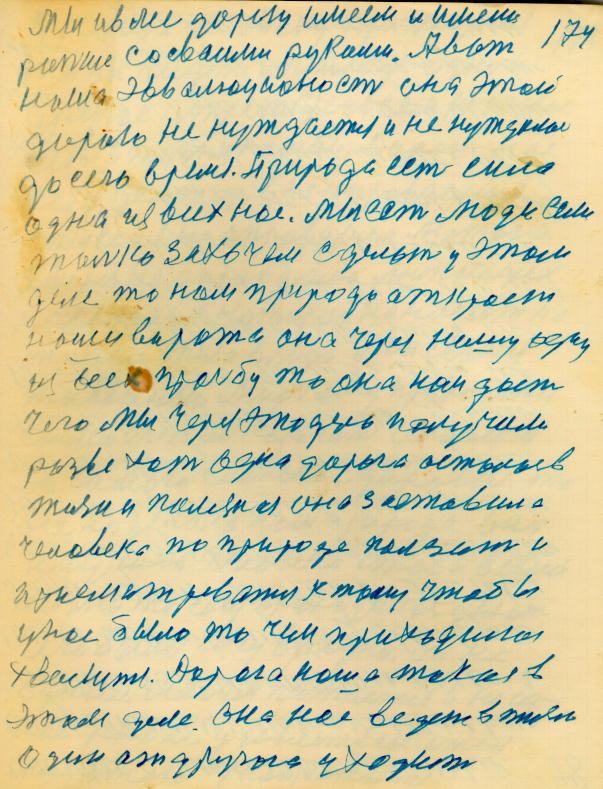 Мы уже дорогу имеем и имели
174
раньше со своими руками. А вот
наша Эвалюционост она Этой
дорого не нуждается и не нуждалас
до сего время. Природа ест сила
одна из всех нас. Мы ест люди если
толко захочем сделат у Этом
деле то нам природа аткроет
наши варота она через нашу одну
из всех прозбу то она нам дает
чего мы через Это дело получили
разве хот одна дорога осталас в
жизни она заставила
человека по природе ползат и
к тому чтобы
у нас было то чем приходилос
хвалится. Дорога наша такая в
Этом деле. она нас ведет в жизн
один ат другога уходит